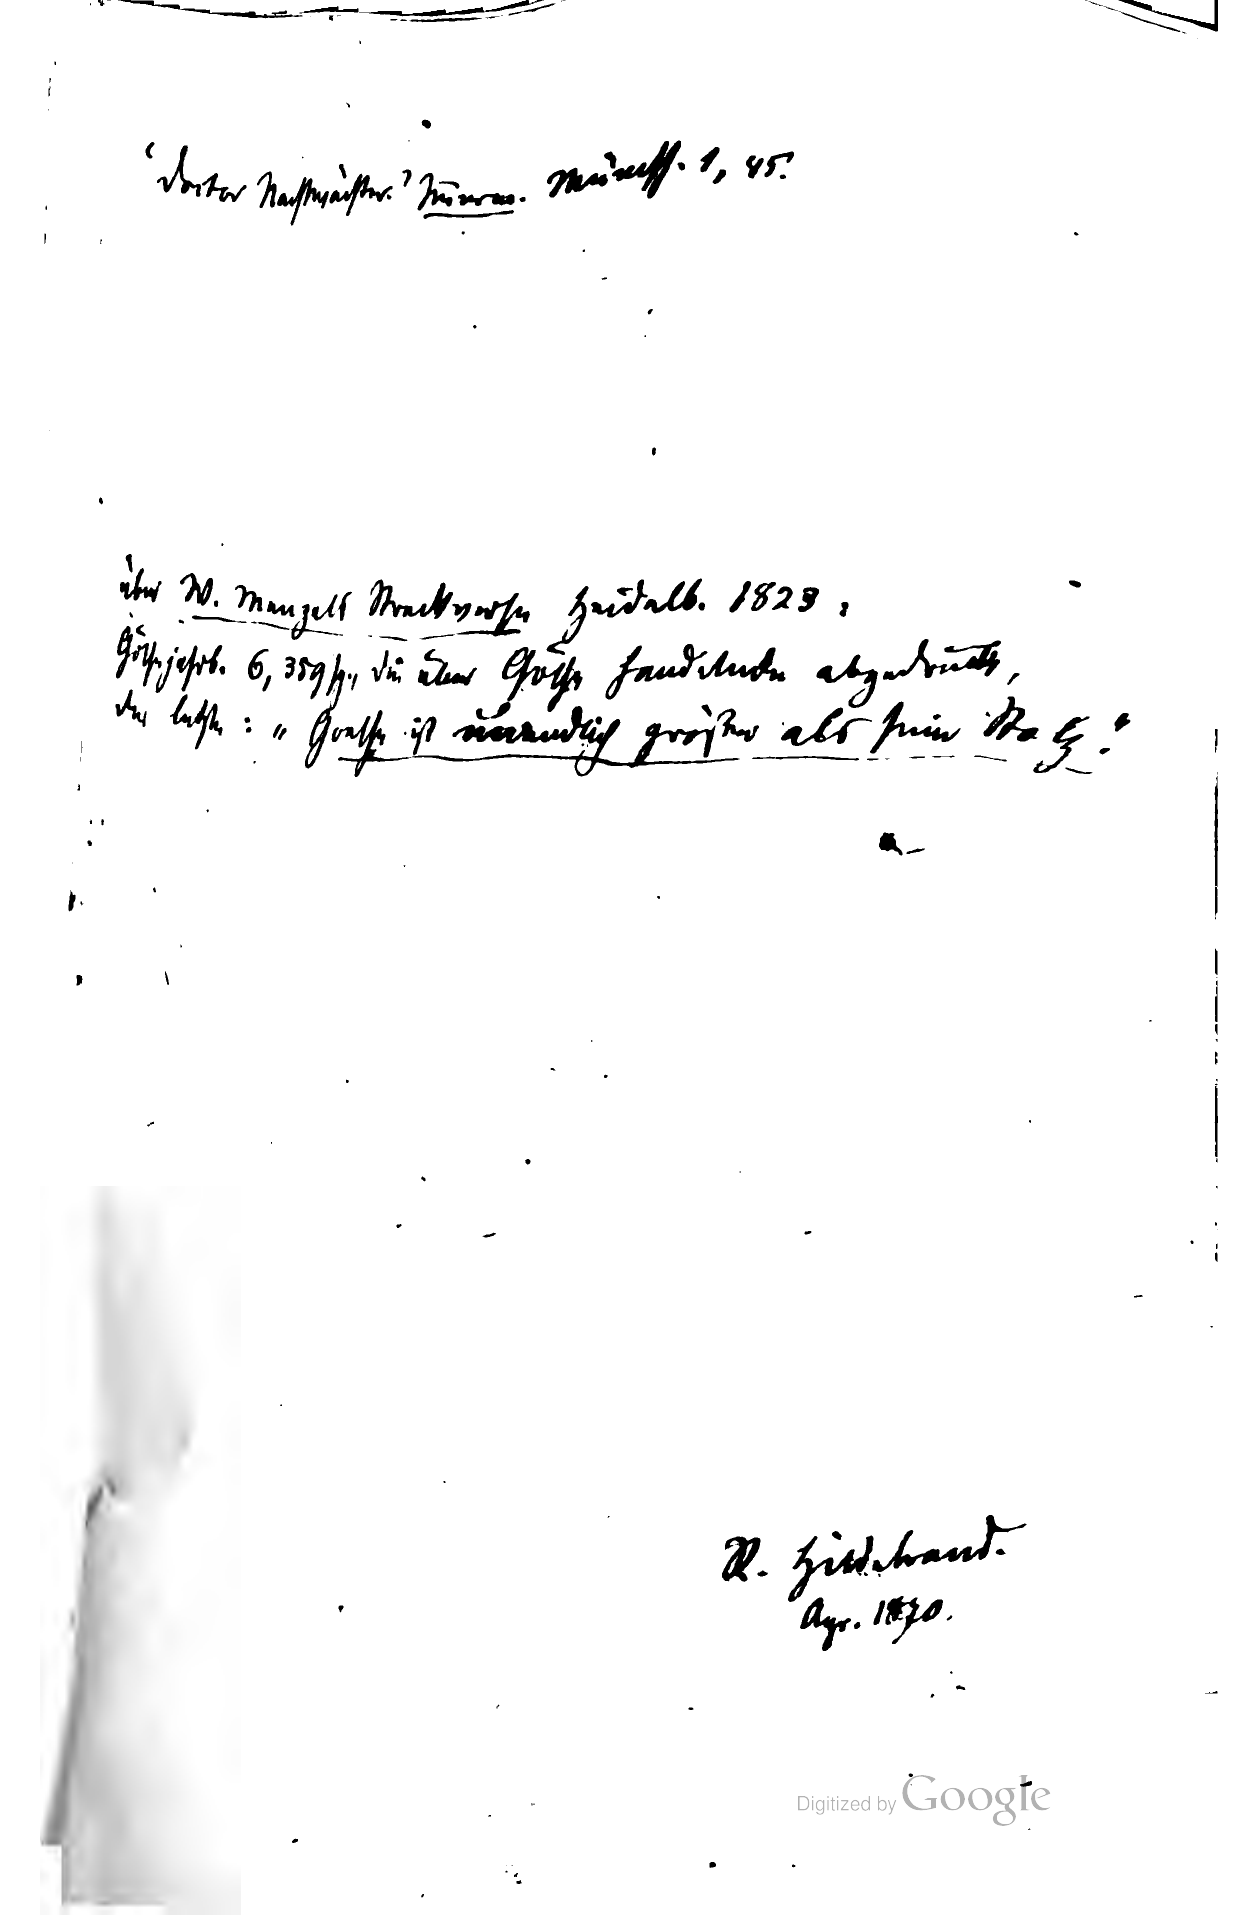 'Doctor Nachtwächter.' Immerm. Münchh. 1, 45.
über W. Menzels Streckverse Heidelb. 1823 :
Göthejahrb. 6, 359 fg., die über Göthe handelnden abgedruckt,
der letzte : „ Goethe ist unendlich größer als sein Stolz."
R. Hildebrand.
Apr. 1870.
Digitized by Google